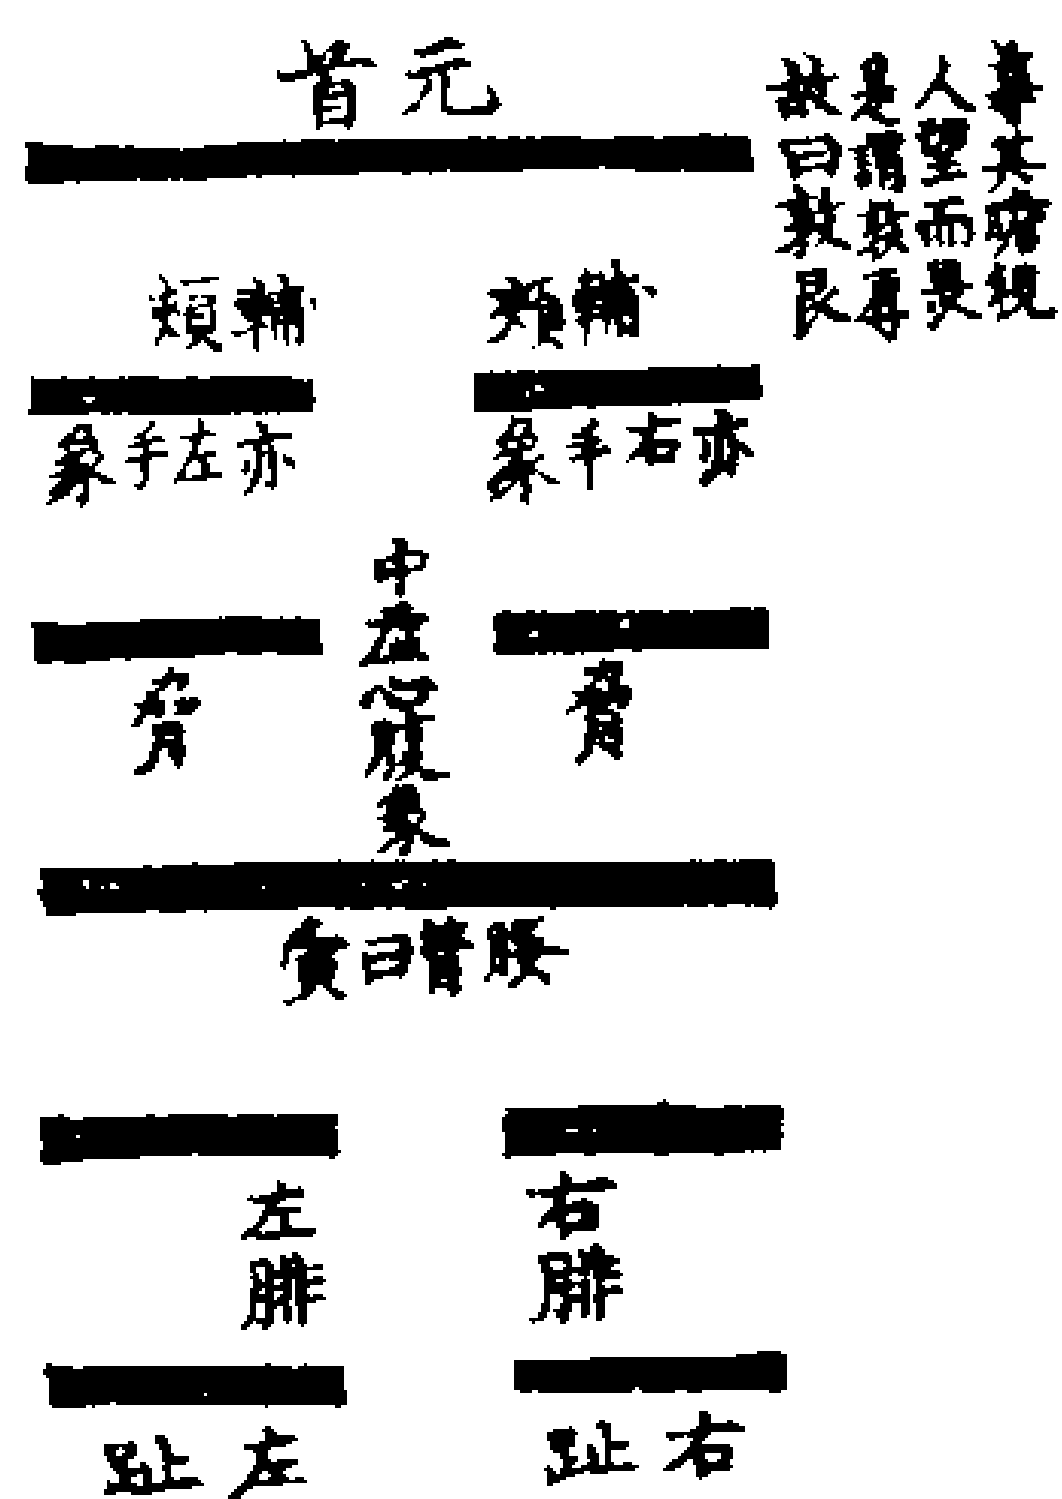 尊其瞻視
人望而畏
是謂敦
故曰敦艮
元首
輔頰
輔頰
亦右手象
亦左手象
脅
中虛心腹象
脅
腰臀曰夤
右腓
左腓
右趾
左趾